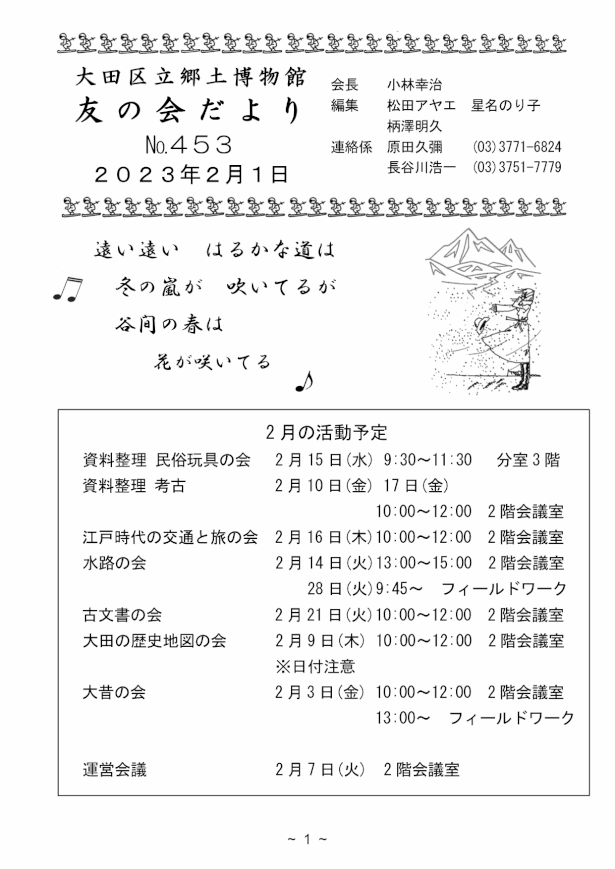 大田区立郷土博物館
友の会だより
№４５３
２０２３年２月１日
会長　小林幸治
編集　松田アヤエ　星名のり子
柄澤明久
連絡係　原田久彌　(03)3771-6824
長谷川浩一　(03)3751-7779
遠い遠い　はるかな道は
冬の嵐が　吹いてるが
谷間の春は
花が咲いてる
２月の活動予定
資料整理 民俗玩具の会　２月15日(水) 9:30～11:30　分室３階
資料整理 考古　２月10日(金) 17日(金)
10:00～12:00　２階会議室
江戸時代の交通と旅の会　２月16日(木)10:00～12:00　２階会議室
水路の会　２月14日(火)13:00～15:00　２階会議室
28日(火)9:45～　フィールドワーク
古文書の会　２月21日(火)10:00～12:00　２階会議室
大田の歴史地図の会　２月９日(木) 10:00～12:00　２階会議室
※日付注意
大昔の会　２月３日(金) 10:00～12:00　２階会議室
13:00～　フィールドワーク
運営会議　２月７日(火)　２階会議室
～ 1 ～